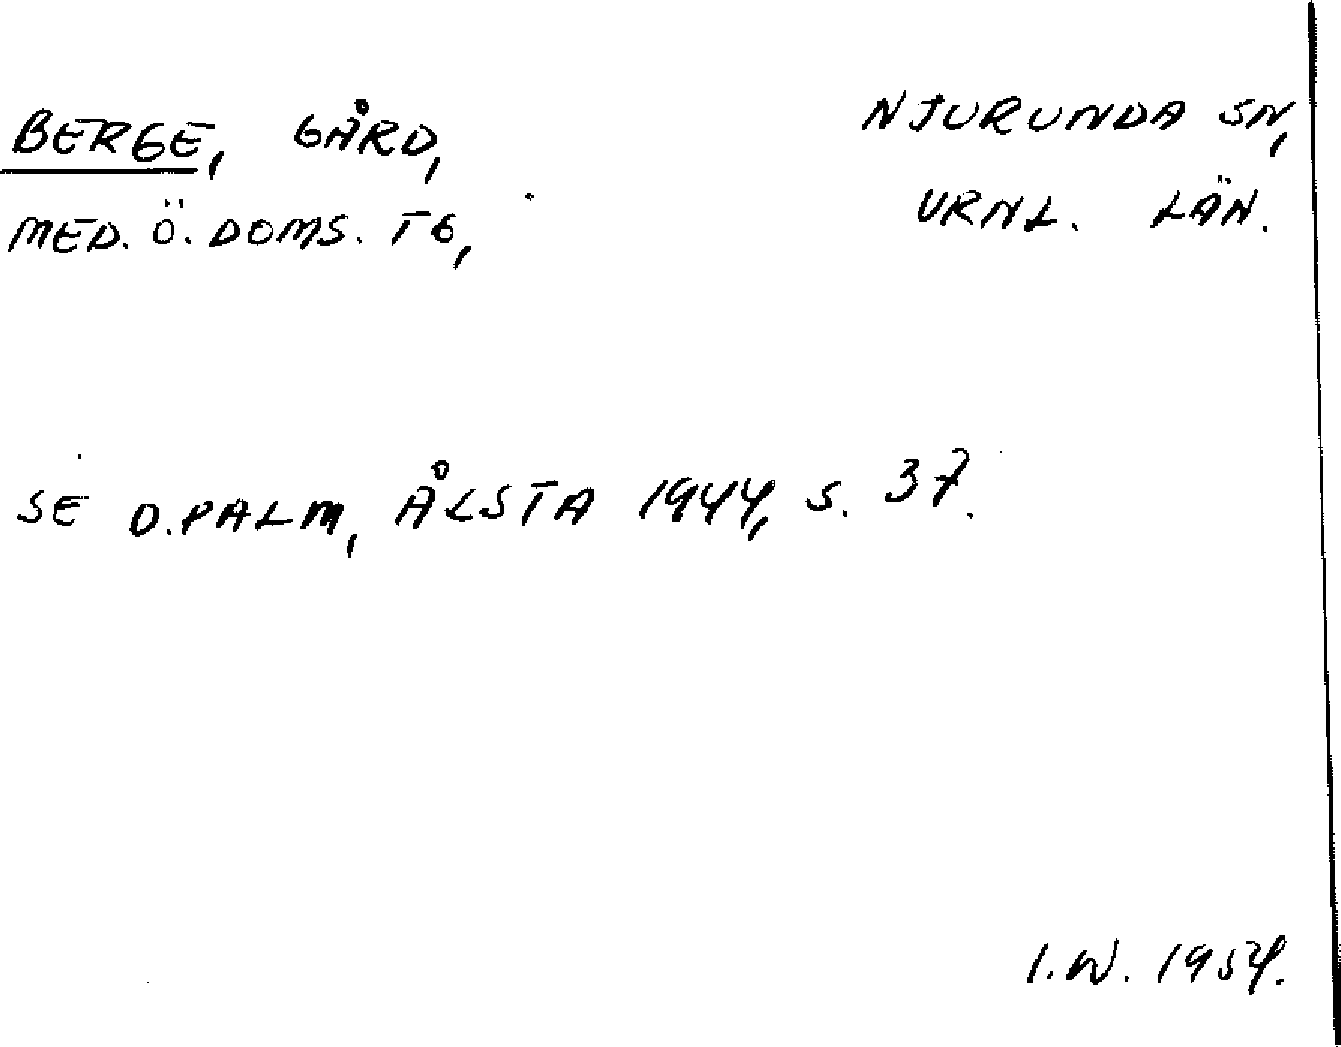 BERGE, GÅRD,
NJURUNDA SN,
MED. Ö. DOMS. TG,
VRNL. LÄN.
SE D. PALM, ÅLSTA 1944, S. 37.
I.W. 1954.